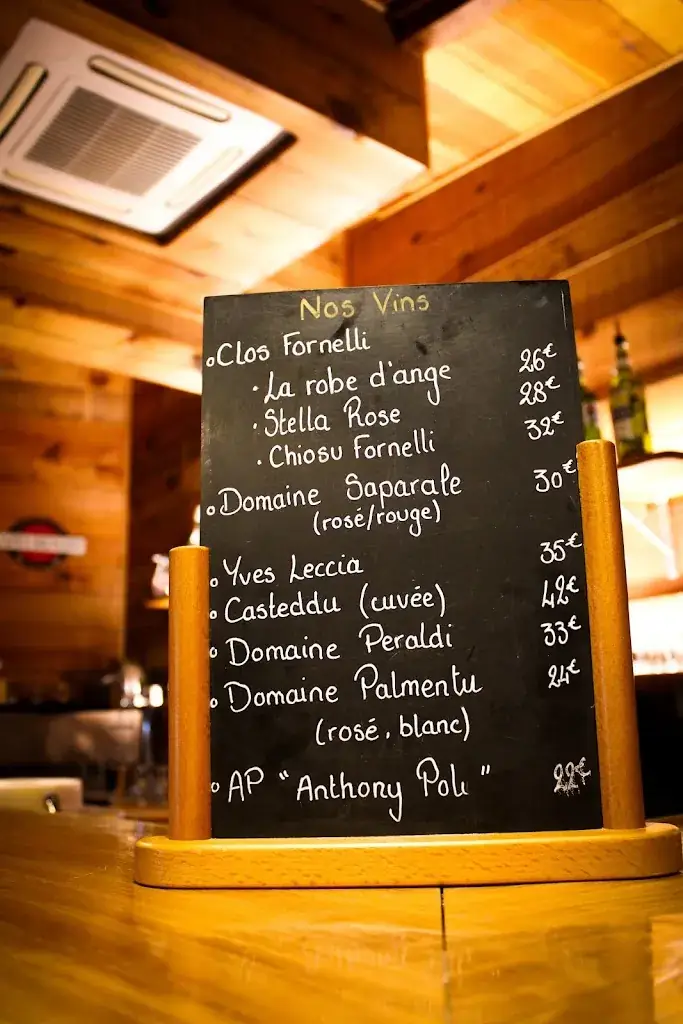 Nos Vins
Clos Fornelli
La robe d'ange 26€
Stella Rose 28€
Chiosu Fornelli 32€
Domaine Saparale 30€
(rosé/rouge)
Yves Leccia 35€
Casteddu (cuvée) 42€
Domaine Peraldi 33€
Domaine Palmentu 24€
(rosé, blanc)
AP "Anthony " 22€